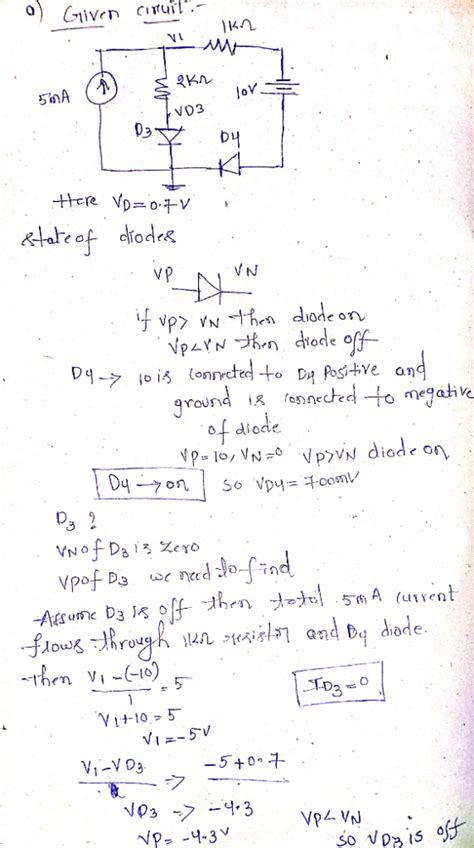 a) Given circuit:-
V1
1kΩ
5mA
2kΩ
10V
VD3
D3
D4
Here VD=0.7V
state of diodes
VP VN
if VP> VN then diode on
VP<VN then diode off
D4→ 10 is connected to D4 Positive and
ground is connected to negative
of diode
VP=10, VN=0 VP>VN diode on
D4→on so VD4=700mV
D3 ?
VN of D3 is zero
VP of D3 we need to find
Assume D3 is off then total 5mA current
flows through 1kΩ resistor and D4 diode.
Then V1-(-10)/1 = 5
ID3=0
V1+10=5
V1=-5V
V1-VD3 => -5+0.7
VD3 => -4.3
VP= -4.3V
VP<VN
so VD3 is off